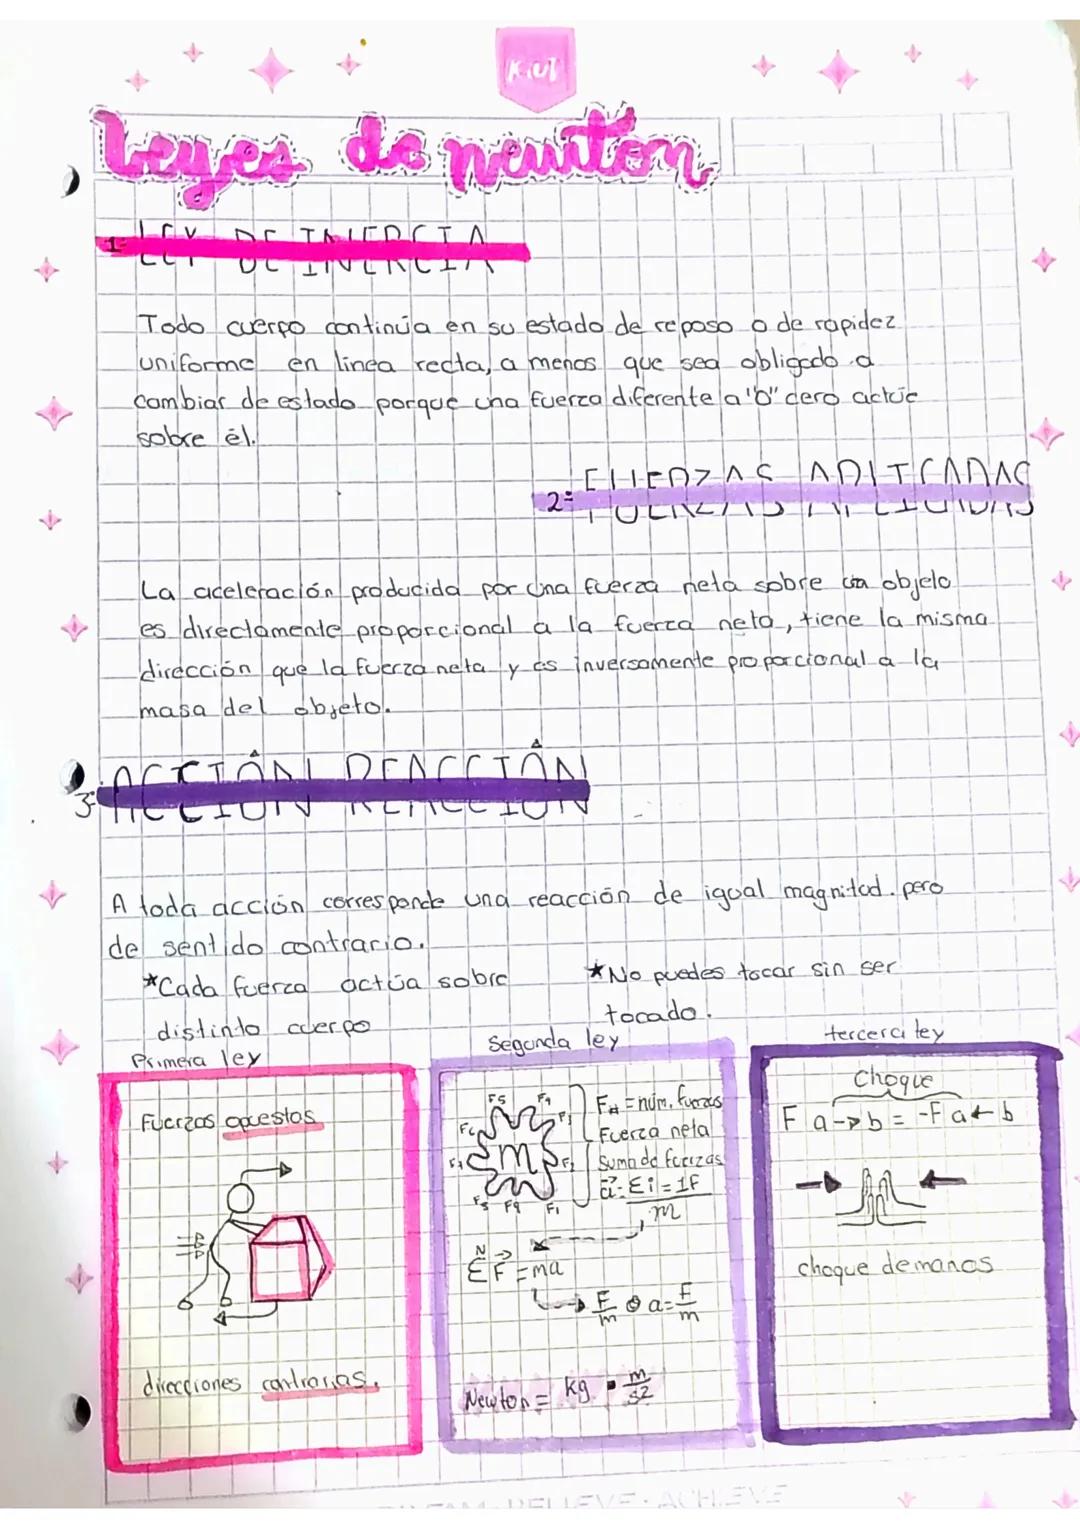 KIUT
Leyes de newton
1- LEY DE INERCIA
Todo cuerpo continúa en su estado de reposo o de rapidez
uniforme en linea recta, a menos que sea obligado a
cambiar de estado porque una fuerza diferente a "0" cero actúe
sobre él.
2= FUERZAS APLICADAS
La aceleración producida por una fuerza neta sobre un objeto
es directamente proporcional a la fuerza neta, tiene la misma
dirección que la fuerza neta y es inversamente proporcional a la
masa del objeto.
3- ACCIÓN REACCIÓN
A toda acción corresponde una reacción de igual magnitud. pero
de sentido contrario.
*Cada fuerza actúa sobre
distinto cuerpo
*No puedes tocar sin ser
tocado.
Primera ley
Fuerzas opuestas
direcciones contrarias.
Segunda ley
m
F# = núm. fuerzas
Fuerza neta
Suma de fuerzas
m
N
Σ F = ma
F/m o a = F/m
Newton = kg · m/s2
tercera ley
Choque
F a→b = -F a←b
choque de manos
BELIEVE · ACHIEVE